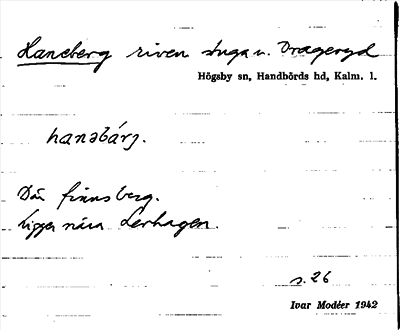 Haneberg riven stuga u. Drageryd
Högsby sn, Handbörds hd, Kalm. l.
hanəbárj.
Där finns berg.
Ligger nära Lerhagen.
s. 26
Ivar Modéer 1942